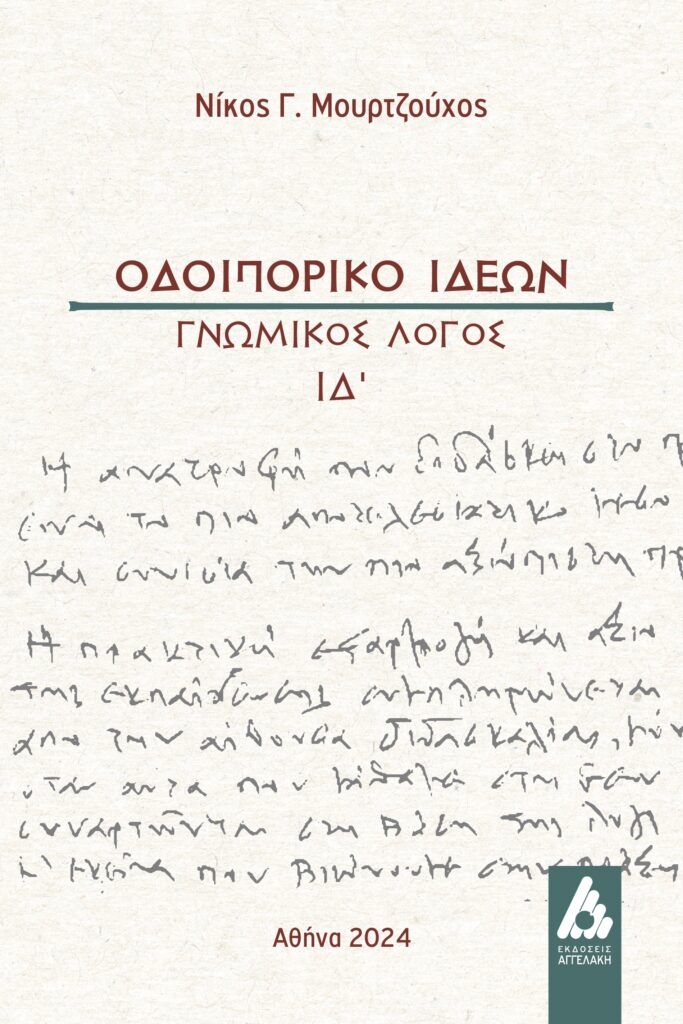 Νίκος Γ. Μουρτζούχος
ΟΔΟΙΠΟΡΙΚΟ ΙΔΕΩΝ
ΓΝΩΜΙΚΟΣ ΛΟΓΟΣ
ΙΔ'
Η ανατροφή που διδάσκει στην
είναι το πιο αποτελεσματικό
και συνιστά την πιο αξιόπιστη
Η πρακτική εφαρμογή και αξία
της εκπαίδευσης συμπληρώνεται
από την αίθουσα διδασκαλίας,
όταν αυτά που
συναρτώνται στη βάση της
κι εκείνα που βιώνουν στην πράξη
Αθήνα 2024
ΕΚΔΟΣΕΙΣ
ΑΓΓΕΛΑΚΗ